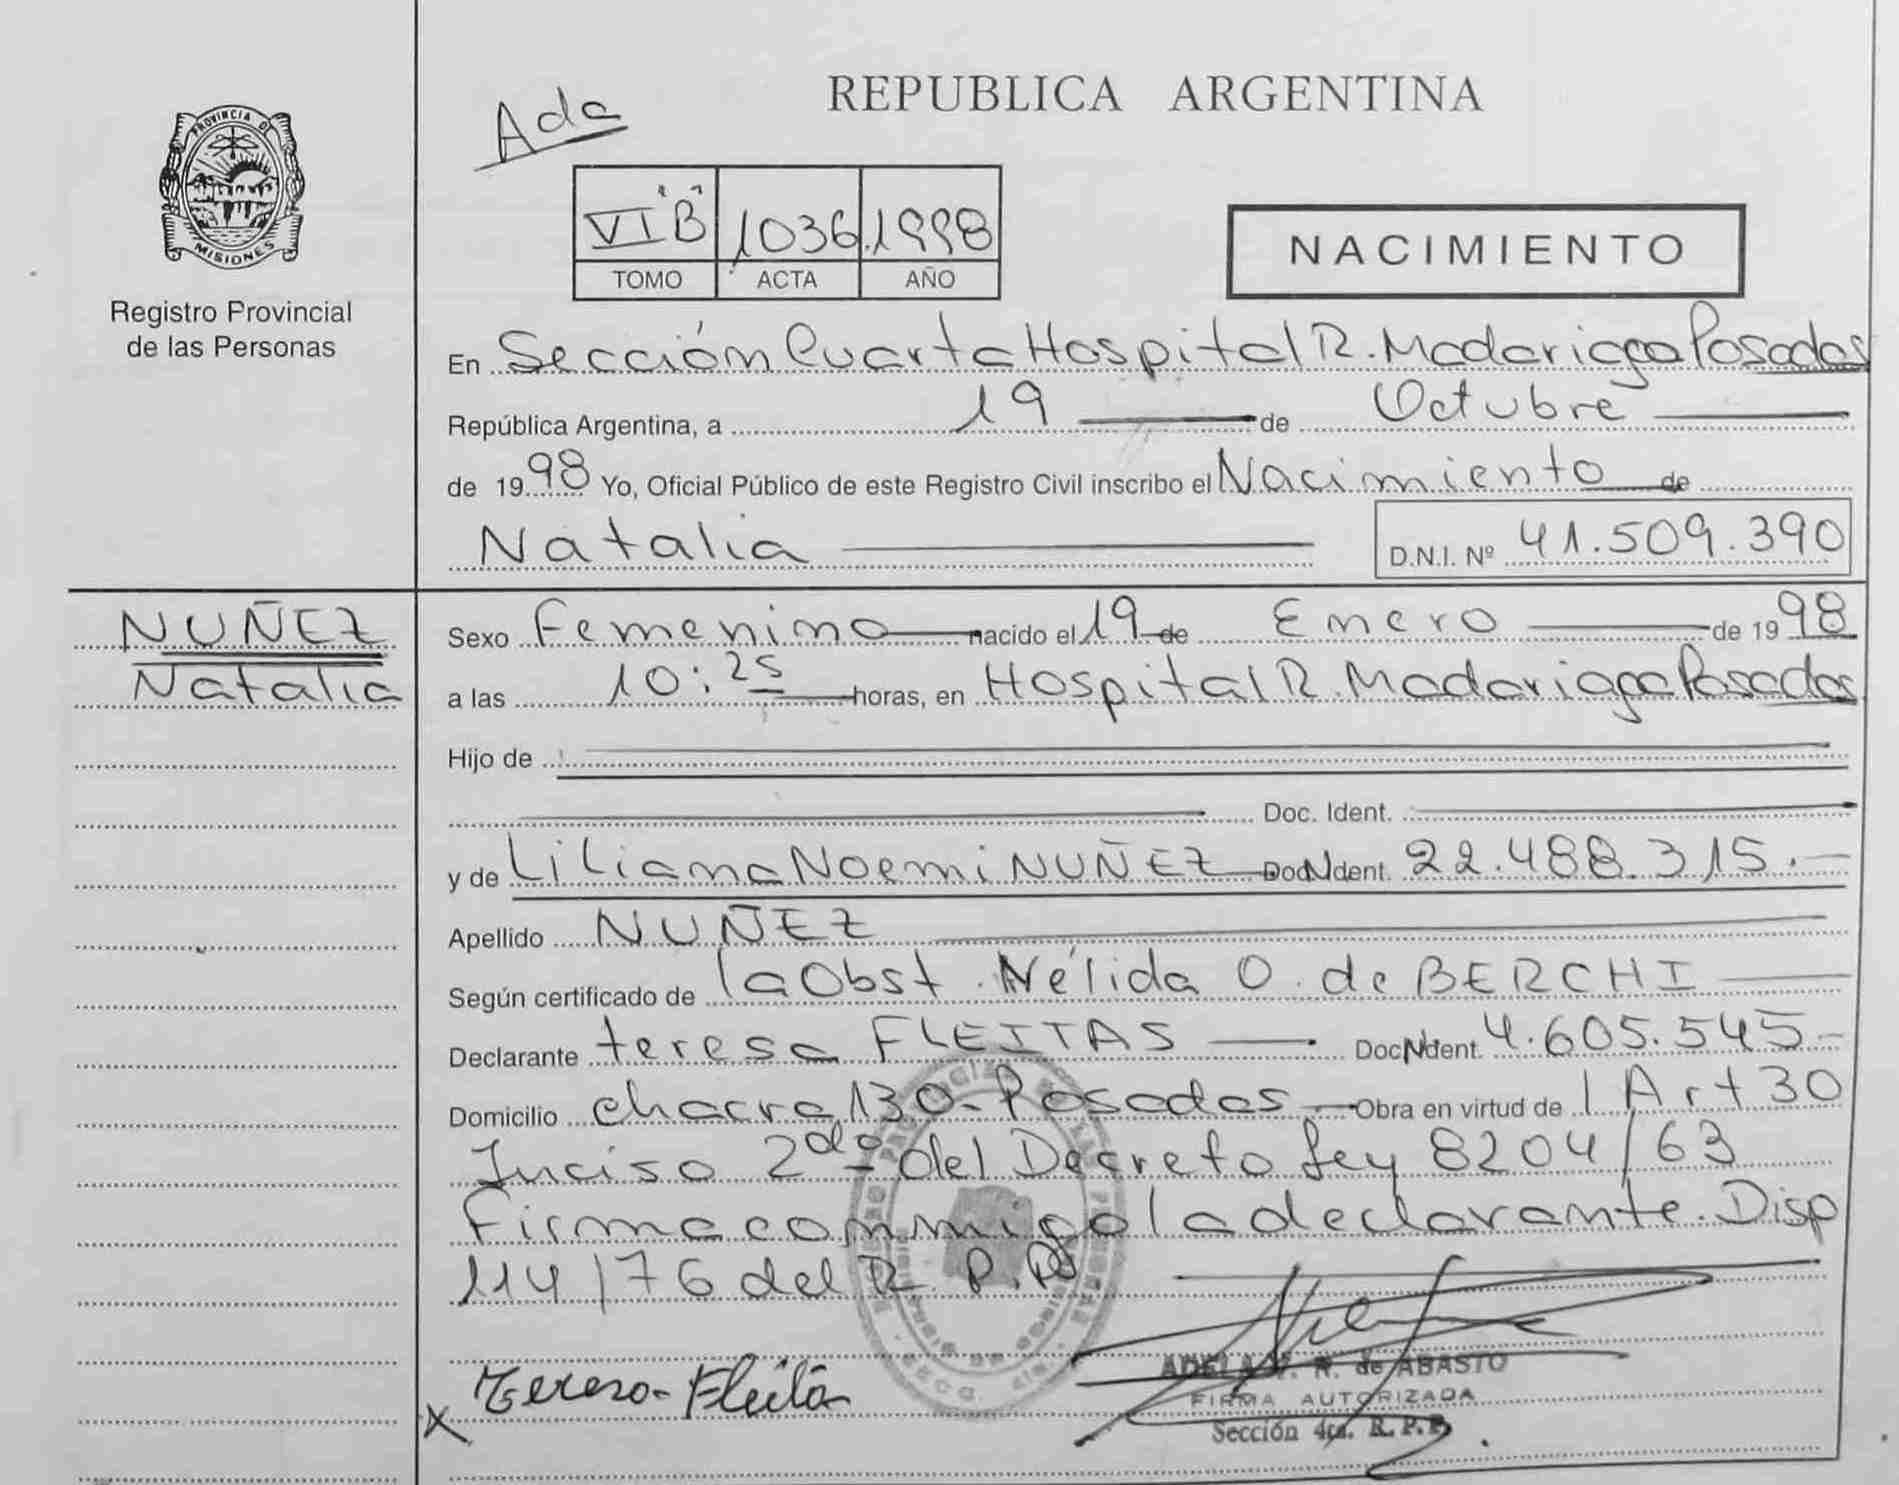 REPUBLICA ARGENTINA
Ada
PROVINCIA DE MISIONES
Registro Provincial
de las Personas
VI "B" 1036 1998
TOMO ACTA AÑO
NACIMIENTO
En Sección Cuarta Hospital R. Madariaga Posadas
República Argentina, a 19 de Octubre
de 1998 Yo, Oficial Público de este Registro Civil inscribo el Nacimiento de
Natalia D.N.I. Nº 41.509.390
NUÑEZ
Natalia
Sexo Femenino nacido el 19 de Enero de 1998
a las 10:25 horas, en Hospital R. Madariaga Posadas
Hijo de
Doc. Ident.
y de Liliana Noemi NUÑEZ Doc N Ident. 22.488.315.
Apellido NUÑEZ
Según certificado de la Obst. Nélida O. de BERCHI
Declarante teresa FLEITAS Doc N Ident. 4.605.545
Domicilio chacra 130 - Posadas Obra en virtud de l Art 30
Inciso 2do del Decreto Ley 8204/63
Firma conmigo la declarante. Disp
114/76 del R. P. P.
X Teresa Fleita
ADELA de ABASTO
FIRMA AUTORIZADA
Sección 4ta. R. P. P.